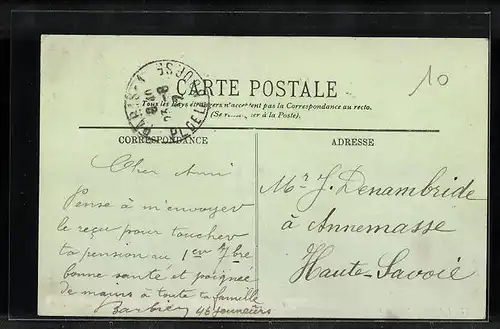 10
CARTE POSTALE
Tous les Pays étrangers n'acceptent pas la Correspondance au recto.
(Se à la Poste).
PARIS-1 PL. DE LA BOURSE
CORRESPONDANCE
ADRESSE
Cher Ami
Pense à m'envoyer
le reçu pour toucher
ta pension au 1er 7bre
bonne santé et poignée
de mains à toute ta famille
Mr J. Denambride
à Annemasse
Haute-Savoie